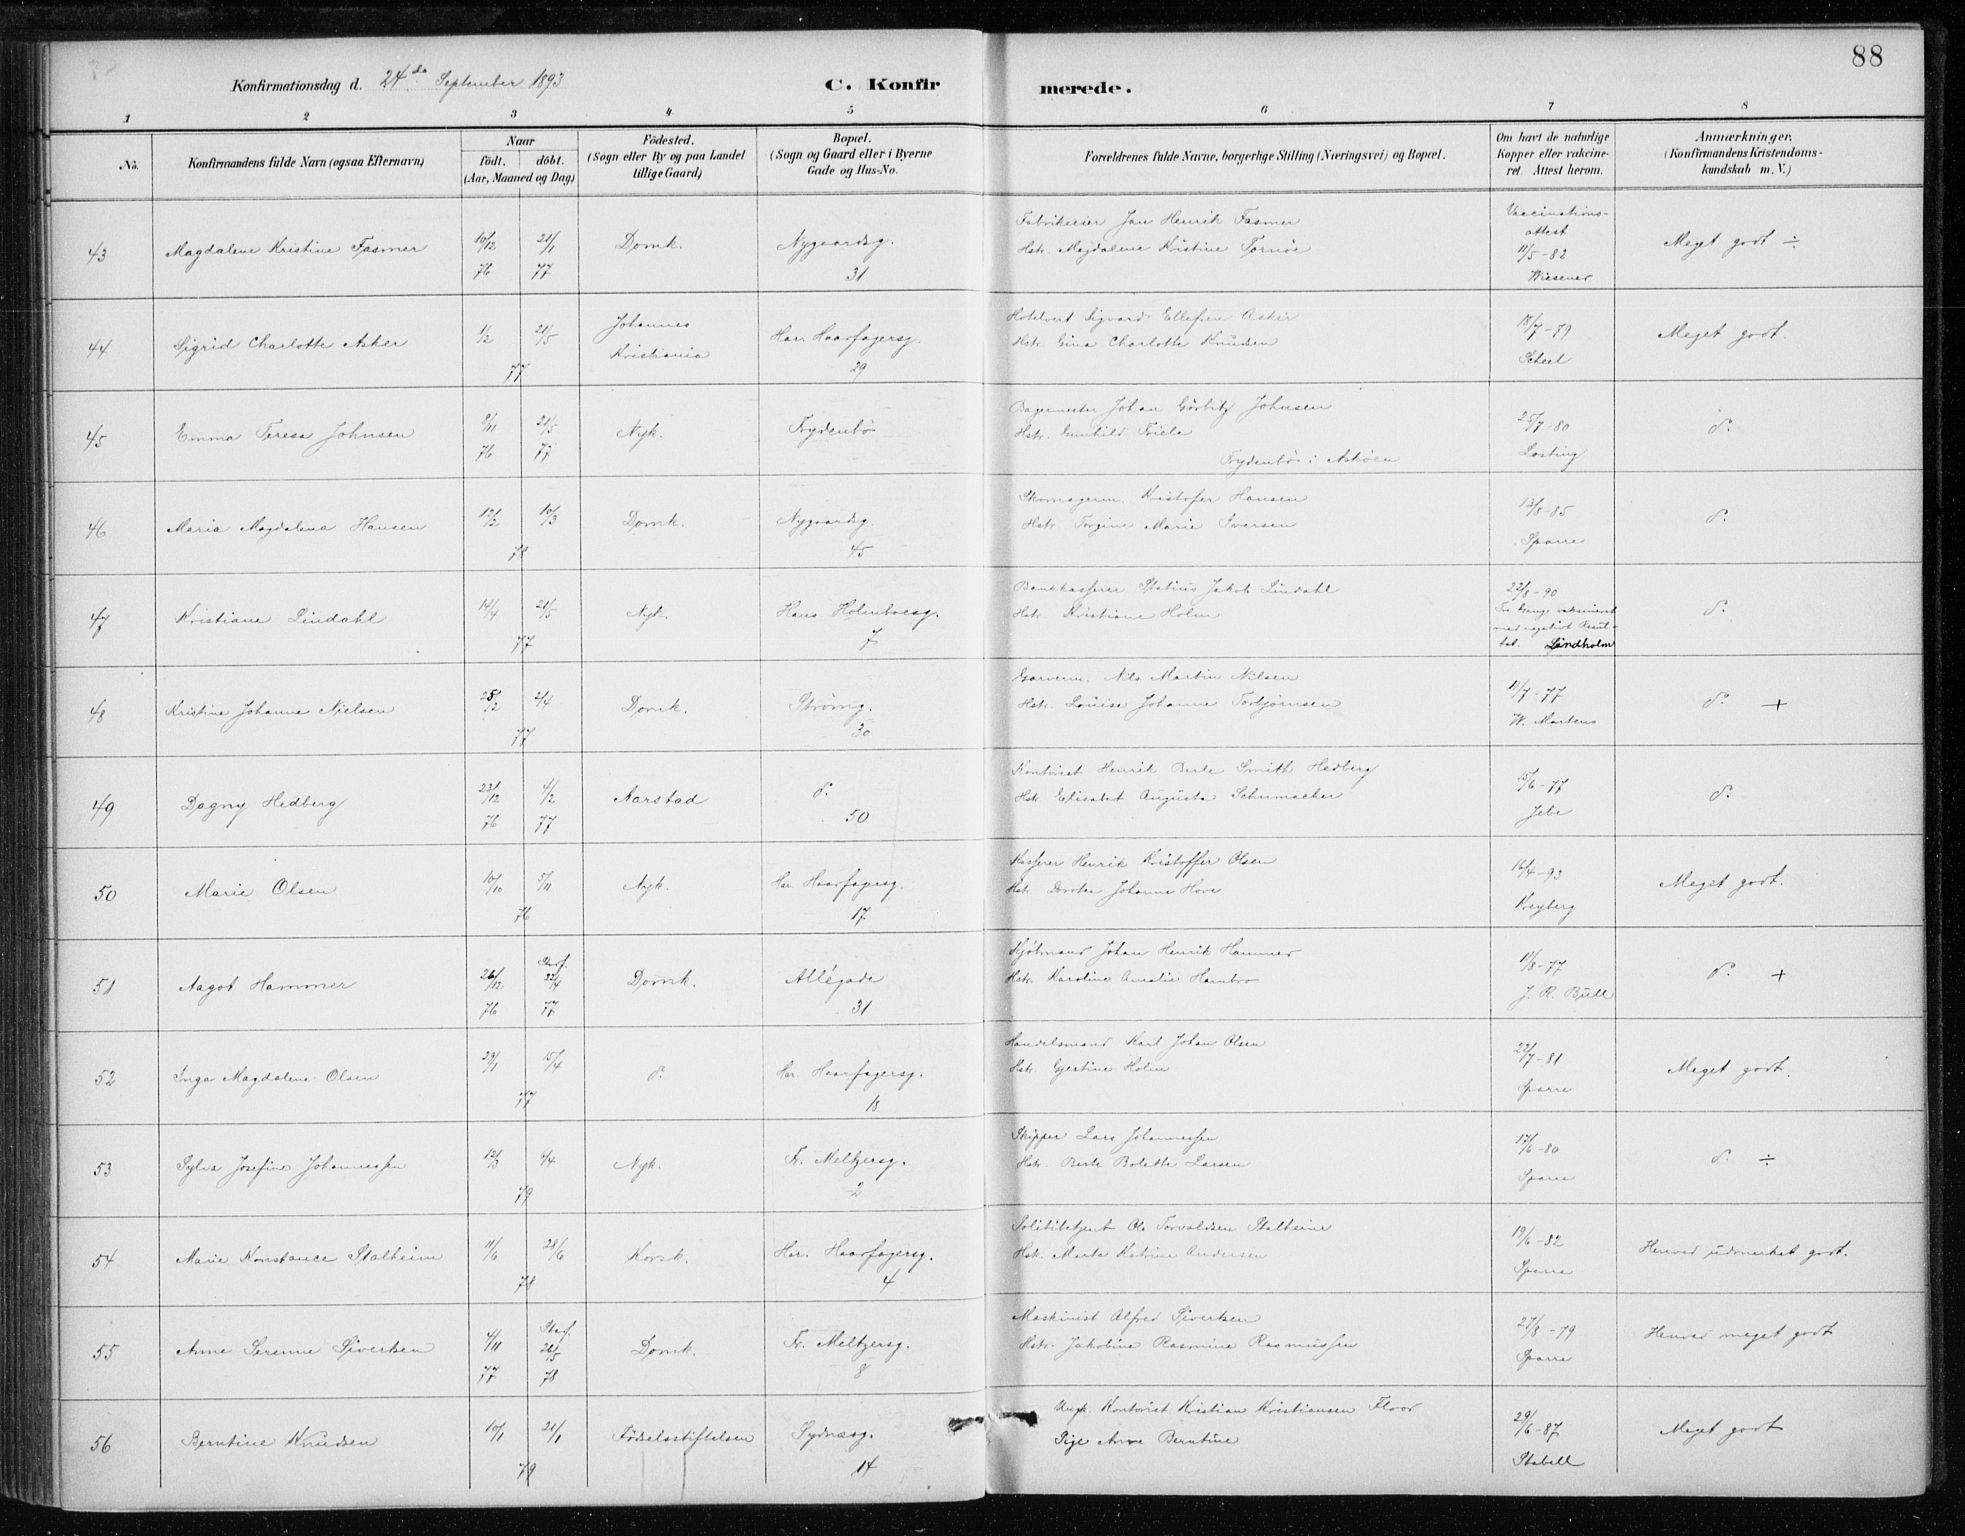 88
Konfirmationsdag d. 24de September 1893
C. Konfir merede.
1 2 3 4 5 6 7 8
No.
Konfirmandens fulde Navn (ogsaa Efternavn)
Naar
födt. döbt.
(Aar, Maaned og Dag)
Födested.
(Sogn eller By og paa Landet
tillige Gaard)
Bopæl.
(Sogn og Gaard eller i Byerne
Gade og Hus-No.
Forældrenes fulde Navne, borgerlige Stilling (Næringsvei) og Bopæl.
Om havt de naturlige
Kopper eller vakcine-
ret. Attest herom.
Anmærkninger.
(Konfirmandens Kristendoms-
kundskab m. V.)
43 Magdalene Kristine Fasmer 10/12 76 21/1 77 Domk. Nygaardsg. 31
Fabrikeier Jan Henrik Fasmer
Hstr. Magdalene Kristine Tornöe
Vaccinations-
attest
11/5-82
Wiesener
Meget godt ÷
44 Sigrid Charlotte Asker 1/2 21/5 77 Johannes Kristiania Har. Haarfagersg. 29
Hotelvert Sigvard Ellefsen Asker
Hstr. Gina Charlotte Knudsen
18/7-79
Scheel
Meget godt.
45 Emma Teresa Johnsen 9/11 76 21/5 77 Nyk. Frydenbö
Bagermester Johan Görbitz Johnsen
Hstr. Gunhild Friele
Frydenbö i Asköen
25/7-80
Losting
d.
46 Maria Magdalena Hansen 12/2 10/3 78 Domk. Nygaardsg 45
Skomagerm. Kristofer Hansen
Hstr. Torgine Marie Iversen
13/8-85
Sparre
d.
47 Kristiane Lindahl 14/4 21/5 77 Nyk. Hans Holmboesg. 7
Bankkasserer Statius Jakob Lindahl
Hstr. Kristiane Holm
22/8-90
Tre Gange vaksineret
med negativt Resul-
tat. Lindholm
d.
48 Kristine Johanne Nielsen 25/2 2/4 77 Domk. Strömg. 30
Garverm. Nils Martin Nilsen
Hstr. Louise Johanne Torbjörnsen
11/7-77
W. Martens
d. +
49 Dagny Hedberg 23/12 76 4/2 77 Aarstad d. 50
Kontorist Henrik Berle Smith Hedberg
Hstr. Elisabet Augusta Schumacher
15/6-77
Jebe
d.
50 Marie Olsen 10/10 5/11 76 Nyk. Har. Haarfagersg. 17
Kasserer Henrik Kristoffer Olsen
Hstr. Dorotea Johanne Hove
16/4-93
Kreyberg
Meget godt.
51 Aagot Hammer 26/12 76 Stadf. 22/4 77 Domk. Allégade 31
Kjöbmand Johan Henrik Hammer
Hstr. Karoline Amalie Hambro
11/8-77
J. R. Bull
d. +
52 Inga Magdalene Olsen 29/1 15/4 77 d. Har. Haarfagersg. 18
Handelsmand Karl Johan Olsen
Hstr. Gjertine Holm
22/7-81
Sparre
Meget godt.
53 Sylva Josefine Johannessen 12/3 6/4 79 Nyk. Fr. Meltzersg. 2
Skipper Lars Johannessen
Hstr. Berte Bolette Larsen
17/6-80
Sparre
d. ÷
54 Marie Konstance Stalheim 11/6 28/6 78 Korsk. Har. Haarfagersg. 4
Politibetjent Ole Torvaldsen Stalheim
Hstr. Marta Katrine Andersen
19/6-82
Sparre
Henved udmerket godt.
55 Anne Serenne Sivertsen 4/11 77 Stadf. 26/5 78 Domk. Fr. Meltzersg. 8
Maskinist Alfred Sivertsen
Hstr. Jakobine Rasmine Rasmussen
27/8-79
Sparre
Henved meget godt
56 Berntine Knudsen 10/1 21/1 79 Födselsstiftelsen Sydnæsg. 14
Ungk. Kontorist Kristian Kristiansen Floor
Pige Anne Berntine
29/6-87
Stabell
Meget godt